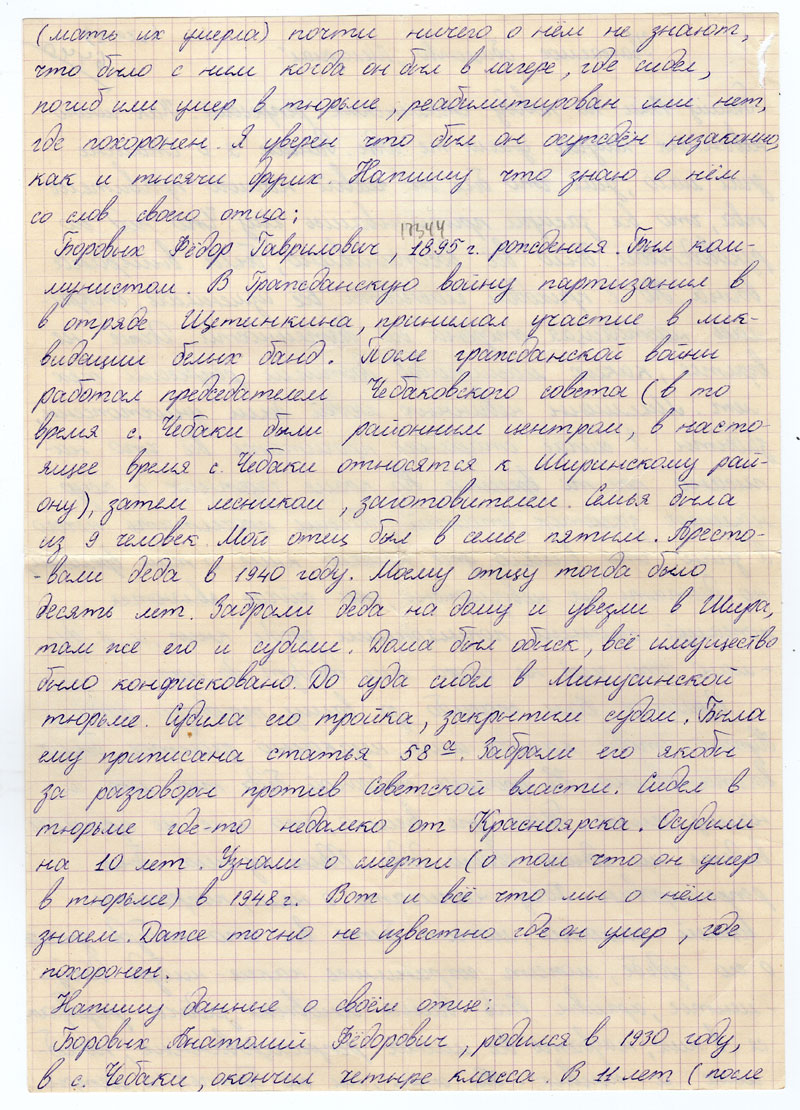 (мать их умерла) почти ничего о нём не знают,
что было с ним когда он был в лагере, где сидел,
погиб или умер в тюрьме, реабилитирован или нет,
где похоронен. Я уверен что был он осуждён незаконно,
как и тысячи других. Напишу что знаю о нём
со слов своего отца:
17344
Боровых Фёдор Гаврилович, 1895 г. рождения. Был ком-
мунистом. В Гражданскую войну партизанил в
в отряде Щетинкина, принимал участие в лик-
видации белых банд. После гражданской войны
работал председателем Чебаковского совета (в то
время с. Чебаки были районным центром, в насто-
ящее время с. Чебаки относятся к Ширинскому рай-
ону), затем лесником, заготовителем. Семья была
из 9 человек. Мой отец был в семье пятым. Аресто-
-вали деда в 1940 году. Моему отцу тогда было
десять лет. Забрали деда на дому и увезли в Шира,
там же его и судили. Дома был обыск, всё имущество
было конфисковано. До суда сидел в Минусинской
тюрьме. Судила его тройка, закрытым судом. Была
ему приписана статья 58 а. Забрали его якобы
за разговоры против Советской власти. Сидел в
тюрьме где-то недалеко от Красноярска. Осудили
на 10 лет. Узнали о смерти (о том что он умер
в тюрьме) в 1948 г. Вот и всё что мы о нём
знаем. Даже точно не известно где он умер, где
похоронен.
Напишу данные о своём отце:
Боровых Анатолий Фёдорович, родился в 1930 году,
в с. Чебаки, окончил четыре класса. В 11 лет (после